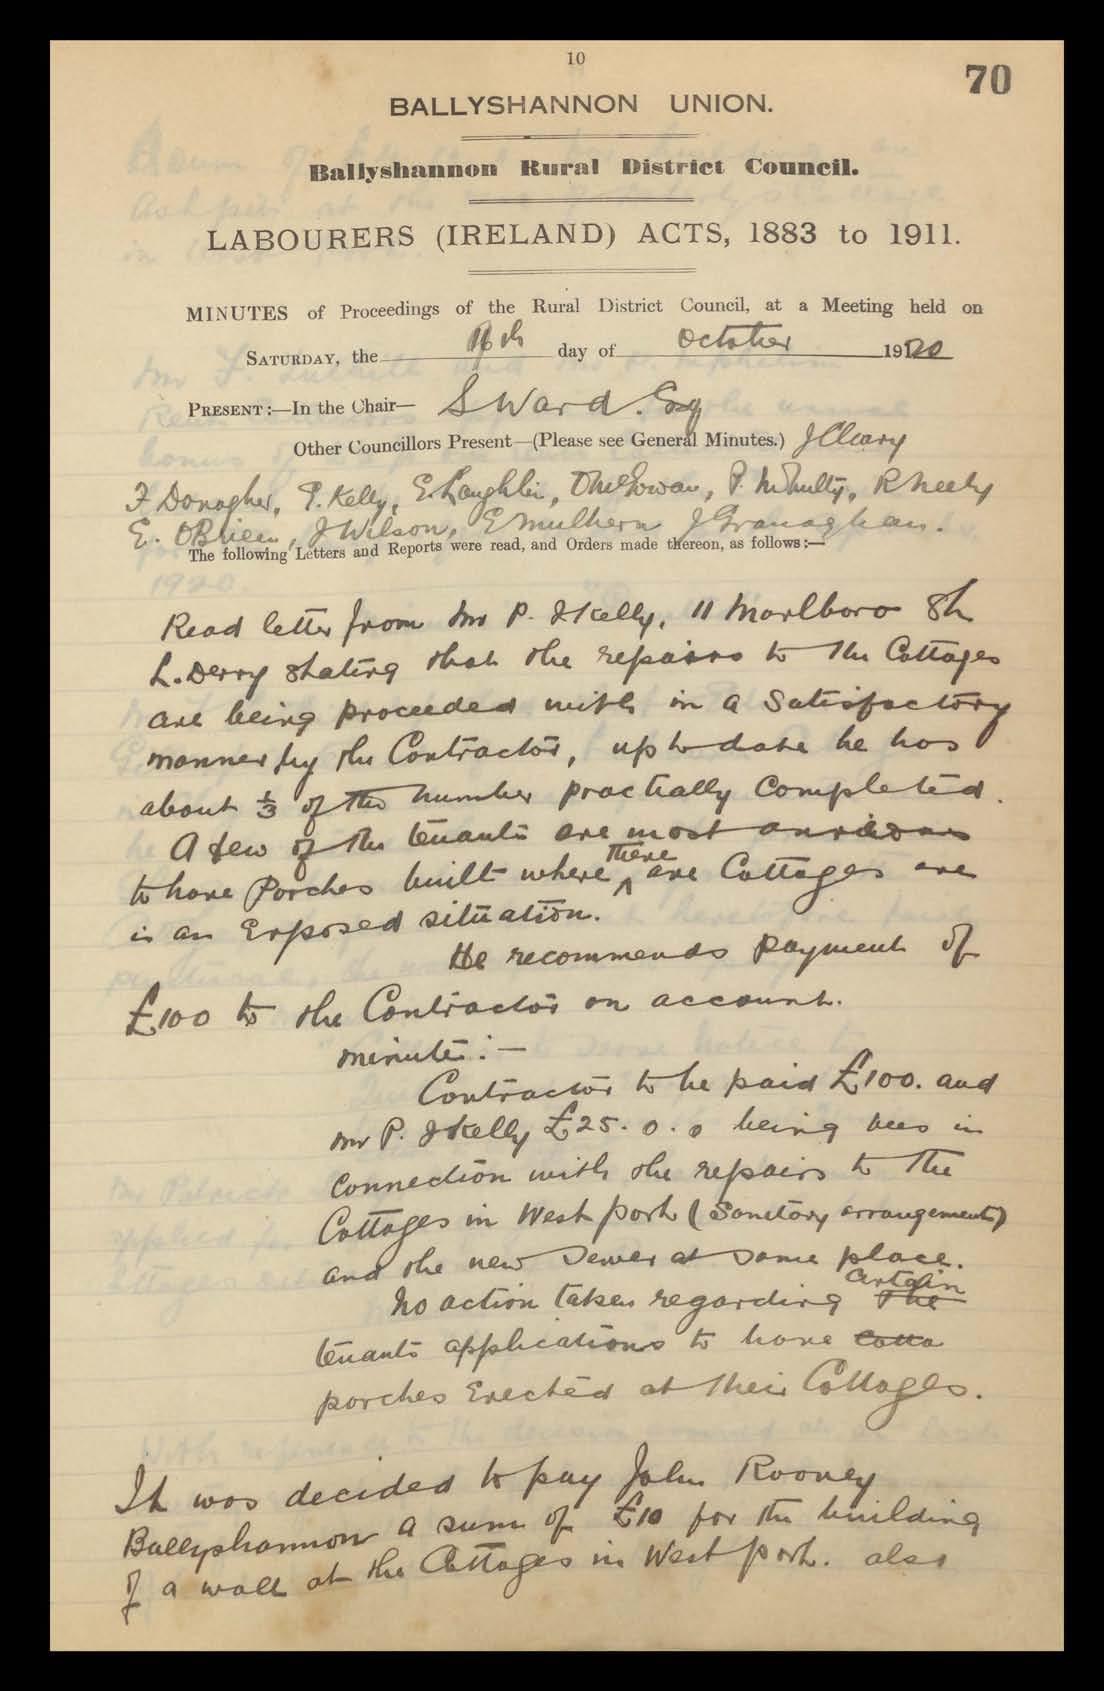 10
70
BALLYSHANNON UNION.
Ballyshannon Rural District Council.
LABOURERS (IRELAND) ACTS, 1883 to 1911.
MINUTES of Proceedings of the Rural District Council, at a Meeting held on
SATURDAY, the 16th day of October 1920
PRESENT:—In the Chair— S Ward. Esq
Other Councillors Present—(Please see General Minutes.) J Cleary
F Donagher, P. Kelly, E. Laughlin, P. McNulty, R Neely
E. OBrien, J Wilson, E Mulhern J Granaghan.
The following Letters and Reports were read, and Orders made thereon, as follows:—
Read letter from Mr P. J Kelly, 11 Marlboro St
L.Derry stating that the repairs to the Cottages
are being proceeded with in a Satisfactory
manner by the Contractor, up to date he has
about ⅓ of the number practially Completed.
A few of the tenants are most anxious
to have Porches built where there are Cottages are
in an Exposed situation.
He recommends payment of
£100 to the Contractor on account.
Minute:—
Contractor to be paid £100. and
Mr P. J Kelly £25. 0. 0 being fees in
Connection with the repairs to the
Cottages in West port (Sanitary arrangements)
and the new Sewer at same place.
Certain
No action taken regarding the
tenants applications to have Cotta
porches Erected at their Cottages.
It was decided to pay John Rooney
Ballyshannon a sum of £10 for the building
of a wall at the Cottages in West port. also